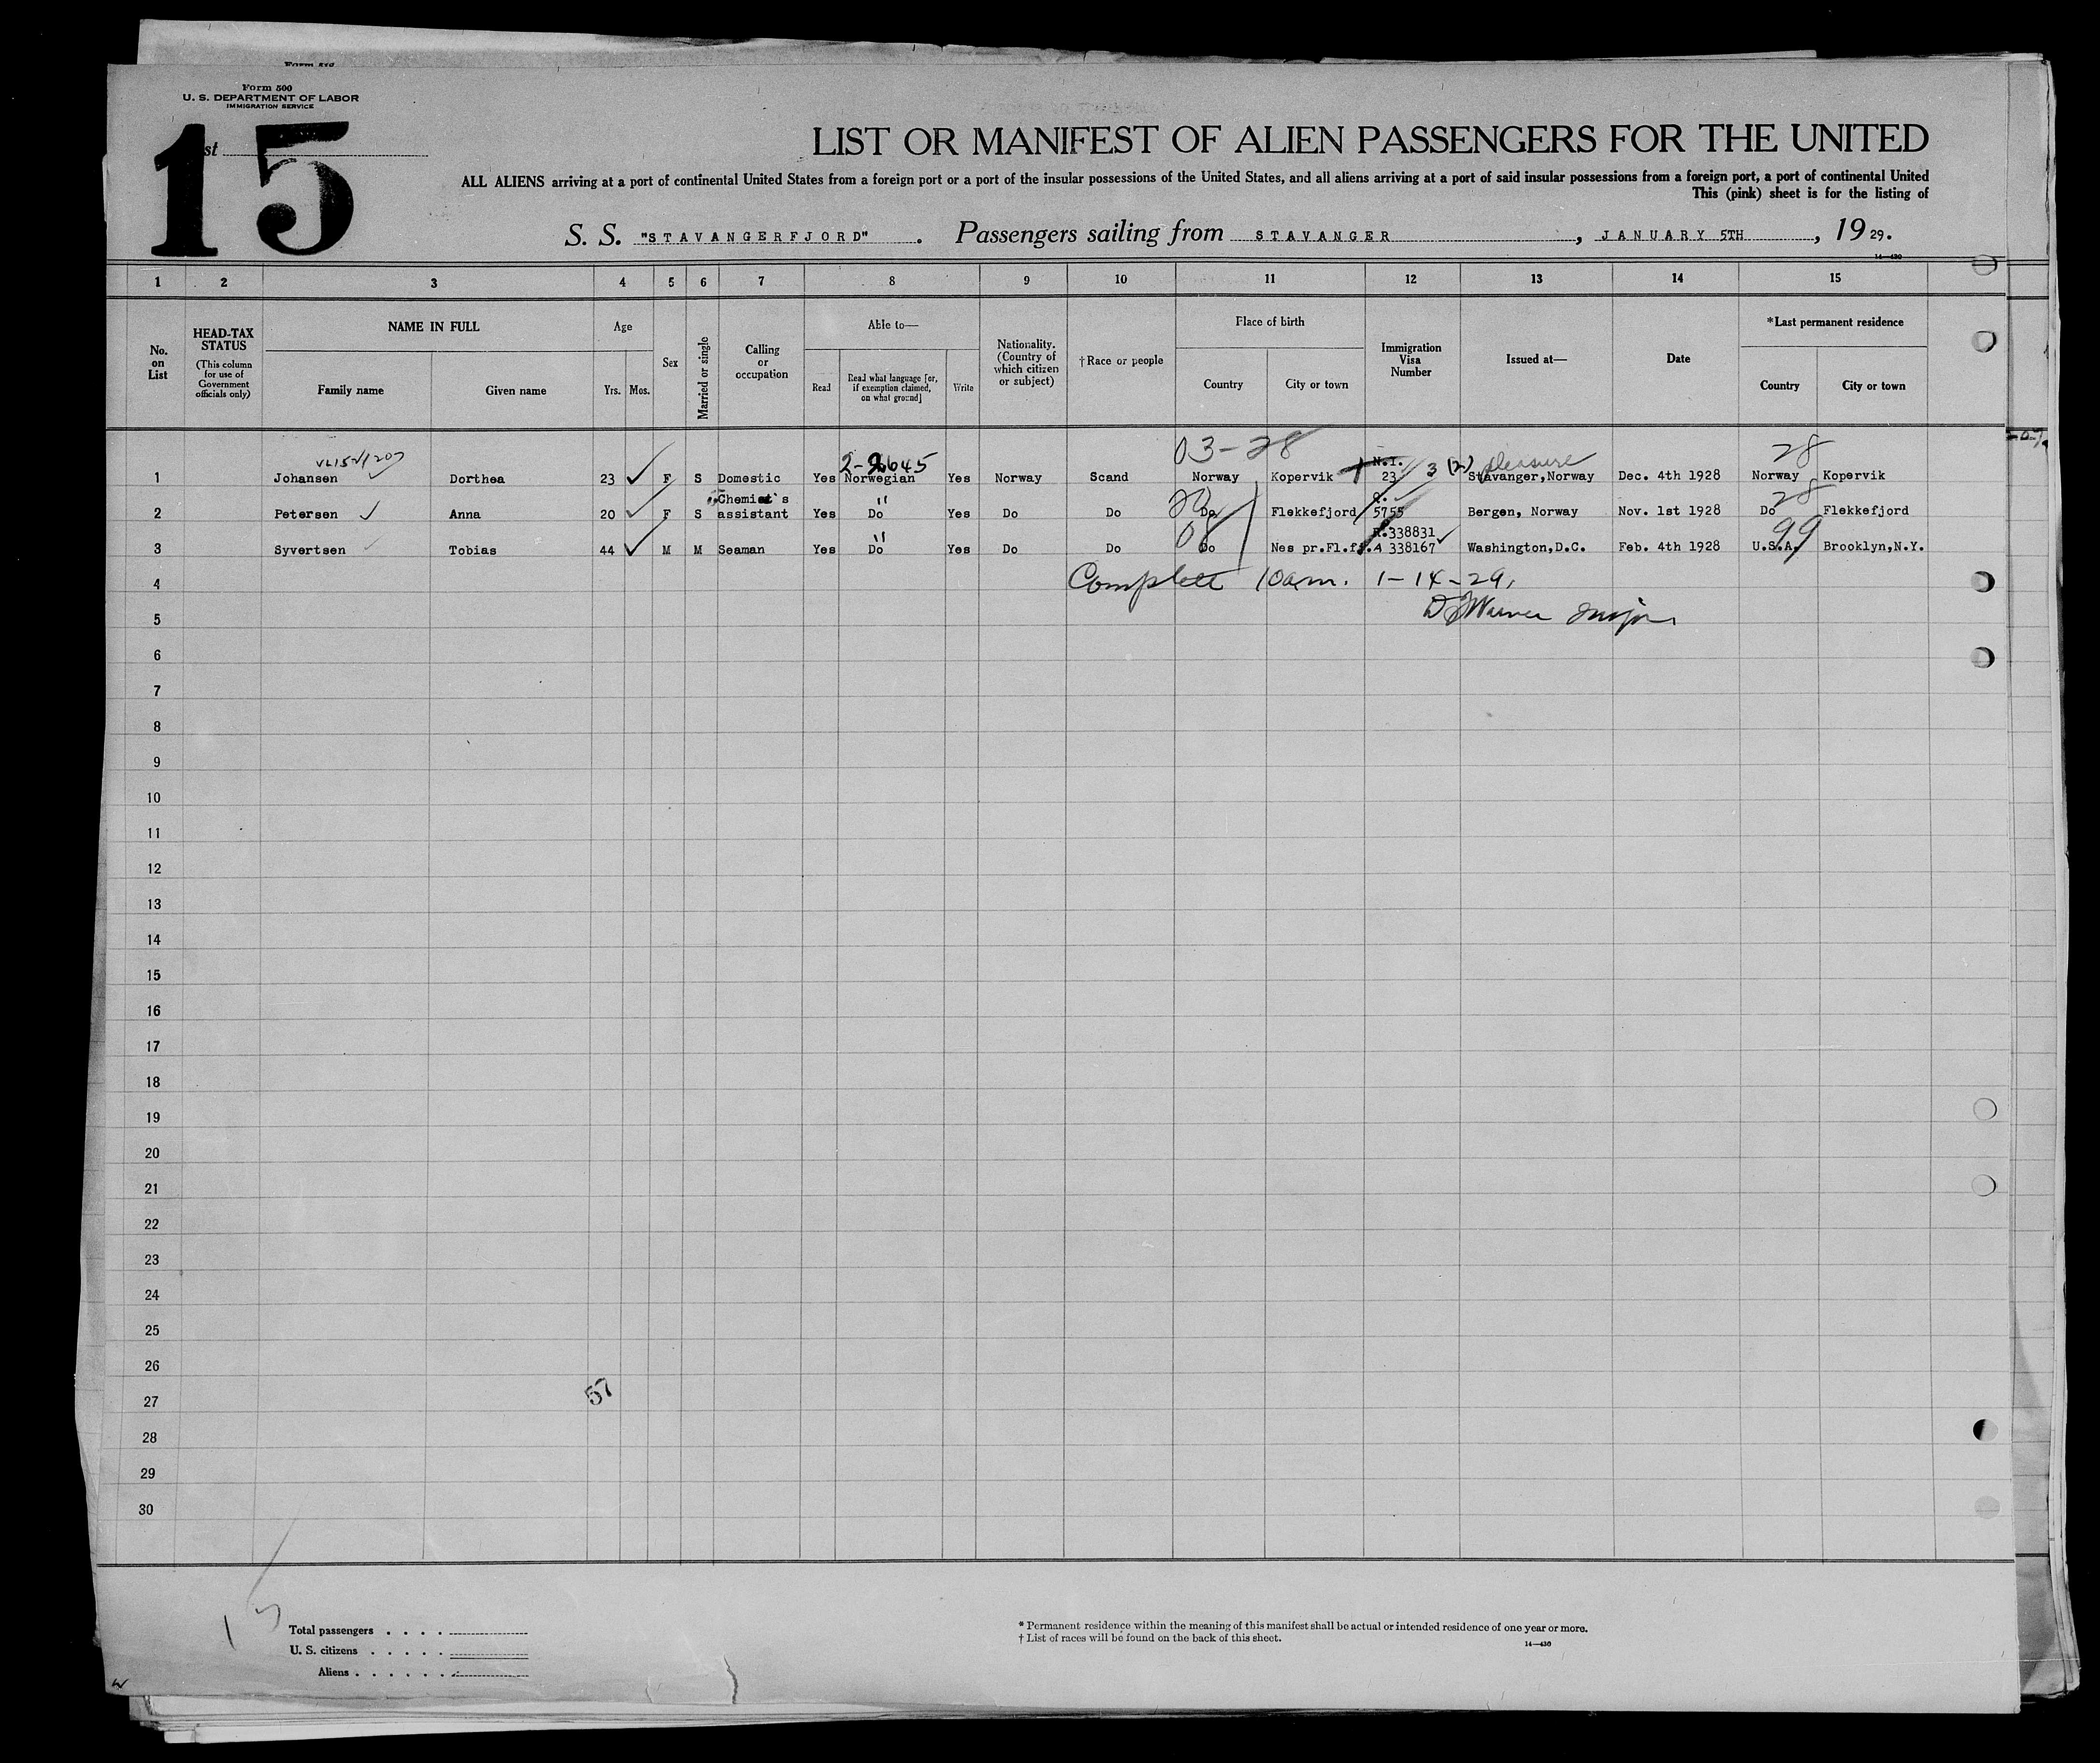 Form 500
U. S. DEPARTMENT OF LABOR
IMMIGRATION SERVICE
15
st
LIST OR MANIFEST OF ALIEN PASSENGERS FOR THE UNITED
ALL ALIENS arriving at a port of continental United States from a foreign port or a port of the insular possessions of the United States, and all aliens arriving at a port of said insular possessions from a foreign port, a port of continental United
This (pink) sheet is for the listing of
S. S. "STAVANGERFJORD" . Passengers sailing from STAVANGER , JANUARY 5TH , 1929.
14—430
1 2 3 4 5 6 7 8 9 10 11 12 13 14 15
No. on List
HEAD-TAX STATUS
(This column for use of Government officials only)
NAME IN FULL
Family name Given name
Age
Yrs. Mos.
Sex
Married or single
Calling or occupation
Able to—
Read
Read what language [or, if exemption claimed, on what ground]
Write
Nationality. (Country of which citizen or subject)
†Race or people
Place of birth
Country City or town
Immigration Visa Number
Issued at—
Date
*Last permanent residence
Country City or town
03-28 28
2-2645 N.I. 3 (2) pleasure
1 Johansen Dorthea 23 F S Domestic Yes Norwegian Yes Norway Scand Norway Kopervik 23 Stavanger,Norway Dec. 4th 1928 Norway Kopervik
Chemist's " 28
2 Petersen Anna 20 F S assistant Yes Do Yes Do Do Do Flekkefjord 5755 Bergen, Norway Nov. 1st 1928 Do Flekkefjord
" 08 338831 99
3 Syvertsen Tobias 44 M M Seaman Yes Do Yes Do Do Do Nes pr.Fl.fj. A 338167 Washington,D.C. Feb. 4th 1928 U.S.A. Brooklyn,N.Y.
4 Complete 10am. 1-14-29.
5
6
7
8
9
10
11
12
13
14
15
16
17
18
19
20
21
22
23
24
25
26
27 57
28
29
30
15
Total passengers . . . .
U. S. citizens . . . . .
Aliens . . . . . . .
* Permanent residence within the meaning of this manifest shall be actual or intended residence of one year or more.
† List of races will be found on the back of this sheet.
14—430